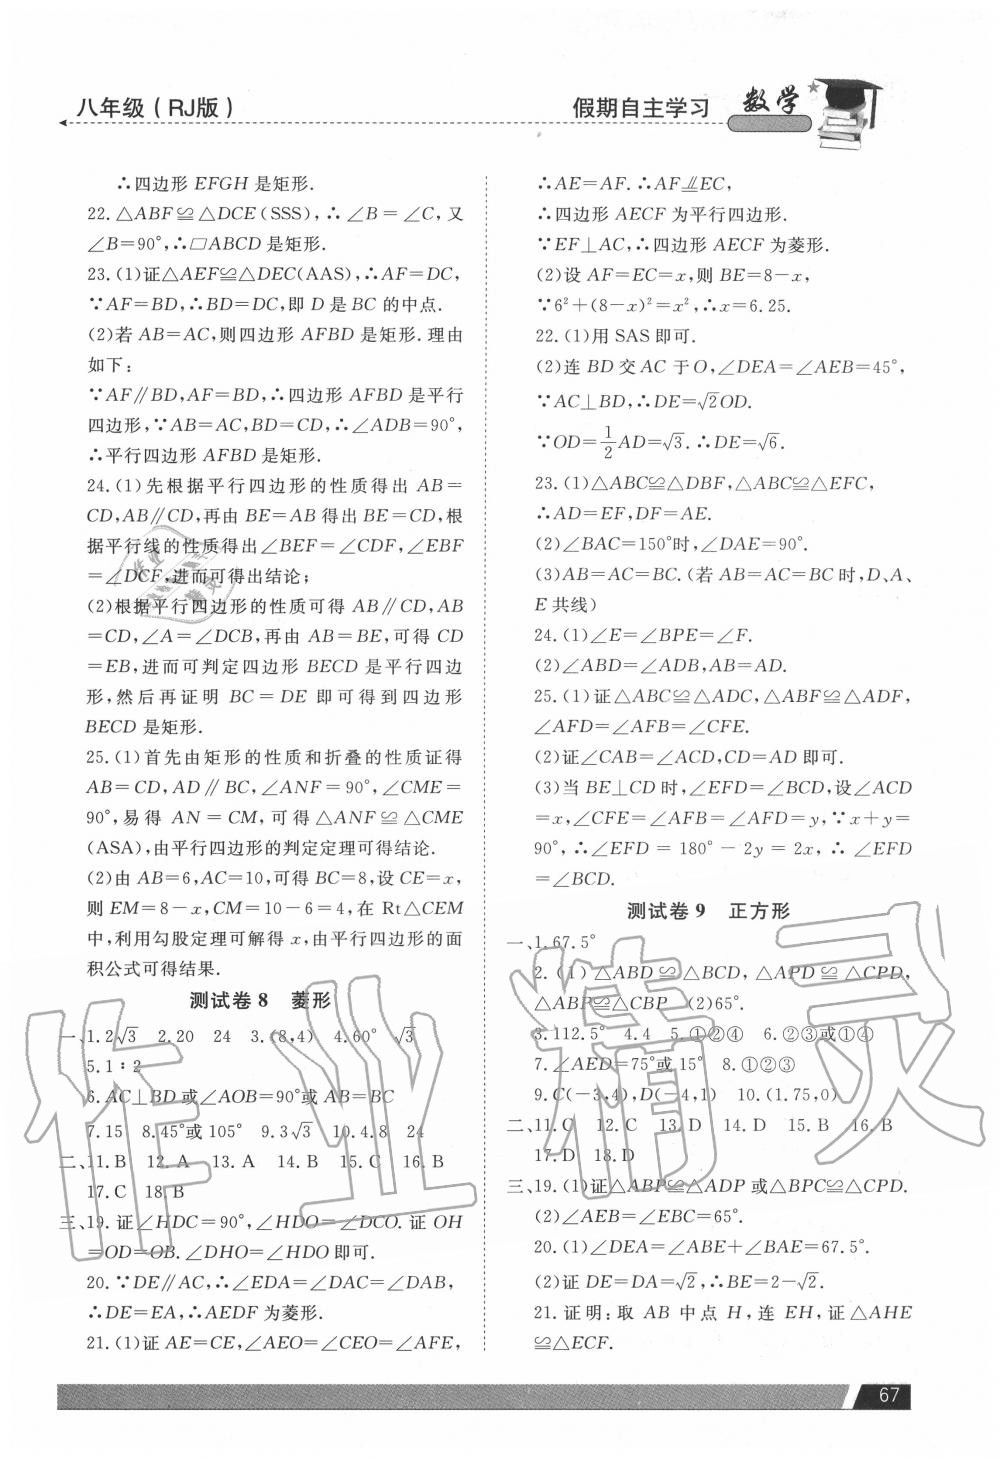 八年级(RJ版)
假期自主学习 数学
∴四边形 EFGH 是矩形.
22.△ABF≌△DCE(SSS),∴∠B=∠C,又
∠B=90°,∴□ABCD 是矩形.
23.(1)证△AEF≌△DEC(AAS),∴AF=DC,
∵AF=BD,∴BD=DC,即 D 是 BC 的中点.
(2)若 AB=AC,则四边形 AFBD 是矩形.理由
如下:
∵AF∥BD,AF=BD,∴四边形 AFBD 是平行
四边形,∵AB=AC,BD=CD,∴∠ADB=90°,
∴平行四边形 AFBD 是矩形.
24.(1)先根据平行四边形的性质得出 AB=
CD,AB∥CD,再由 BE=AB 得出 BE=CD,根
据平行线的性质得出∠BEF=∠CDF,∠EBF
=∠DCF,进而可得出结论;
(2)根据平行四边形的性质可得 AB∥CD,AB
=CD,∠A=∠DCB,再由 AB=BE,可得 CD
=EB,进而可判定四边形 BECD 是平行四边
形,然后再证明 BC=DE 即可得到四边形
BECD 是矩形.
25.(1)首先由矩形的性质和折叠的性质证得
AB=CD,AD∥BC,∠ANF=90°,∠CME=
90°,易得 AN=CM,可得△ANF≌△CME
(ASA),由平行四边形的判定定理可得结论.
(2)由 AB=6,AC=10,可得 BC=8,设 CE=x,
则 EM=8-x,CM=10-6=4,在 Rt△CEM
中,利用勾股定理可解得 x,由平行四边形的面
积公式可得结果.
测试卷 8 菱形
一、1.2√3 2.20 24 3.(8,4) 4.60° √3
5.1∶2
6.AC⊥BD 或∠AOB=90°或 AB=BC
7.15 8.45°或 105° 9.3√3 10.4.8 24
二、11.B 12.A 13.A 14.B 15.C 16.B
17.C 18.B
三、19.证∠HDC=90°,∠HDO=∠DCO.证 OH
=OD=OB.∠DHO=∠HDO 即可.
20.∵DE∥AC,∴∠EDA=∠DAC=∠DAB,
∴DE=EA,∴AEDF 为菱形.
21.(1)证 AE=CE,∠AEO=∠CEO=∠AFE,
∴AE=AF.∴AF⫫EC,
∴四边形 AECF 为平行四边形.
∵EF⊥AC,∴四边形 AECF 为菱形.
(2)设 AF=EC=x,则 BE=8-x,
∵6²+(8-x)²=x²,∴x=6.25.
22.(1)用 SAS 即可.
(2)连 BD 交 AC 于 O,∠DEA=∠AEB=45°,
∵AC⊥BD,∴DE=√2OD.
∵OD=1/2AD=√3.∴DE=√6.
23.(1)△ABC≌△DBF,△ABC≌△EFC,
∴AD=EF,DF=AE.
(2)∠BAC=150°时,∠DAE=90°.
(3)AB=AC=BC.(若 AB=AC=BC 时,D、A、
E 共线)
24.(1)∠E=∠BPE=∠F.
(2)∠ABD=∠ADB,AB=AD.
25.(1)证△ABC≌△ADC,△ABF≌△ADF,
∠AFD=∠AFB=∠CFE.
(2)证∠CAB=∠ACD,CD=AD 即可.
(3)当 BE⊥CD 时,∠EFD=∠BCD,设∠ACD
=x,∠CFE=∠AFB=∠AFD=y,∵x+y=
90°,∴∠EFD=180°-2y=2x,∴∠EFD
=∠BCD.
测试卷 9 正方形
一、1.67.5°
2.(1)△ABD≌△BCD,△APD≌△CPD,
△ABP≌△CBP (2)65°.
3.112.5° 4.4 5.①②④ 6.②③或①④
7.∠AED=75°或 15° 8.①②③
9.C(-3,4),D(-4,1) 10.(1.75,0)
二、11.C 12.C 13.D 14.D 15.B 16.B
17.D 18.D
三、19.(1)证△ABP≌△ADP 或△BPC≌△CPD.
(2)∠AEB=∠EBC=65°.
20.(1)∠DEA=∠ABE+∠BAE=67.5°.
(2)证 DE=DA=√2,∴BE=2-√2.
21.证明:取 AB 中点 H,连 EH,证△AHE
≌△ECF.
67
作业精灵